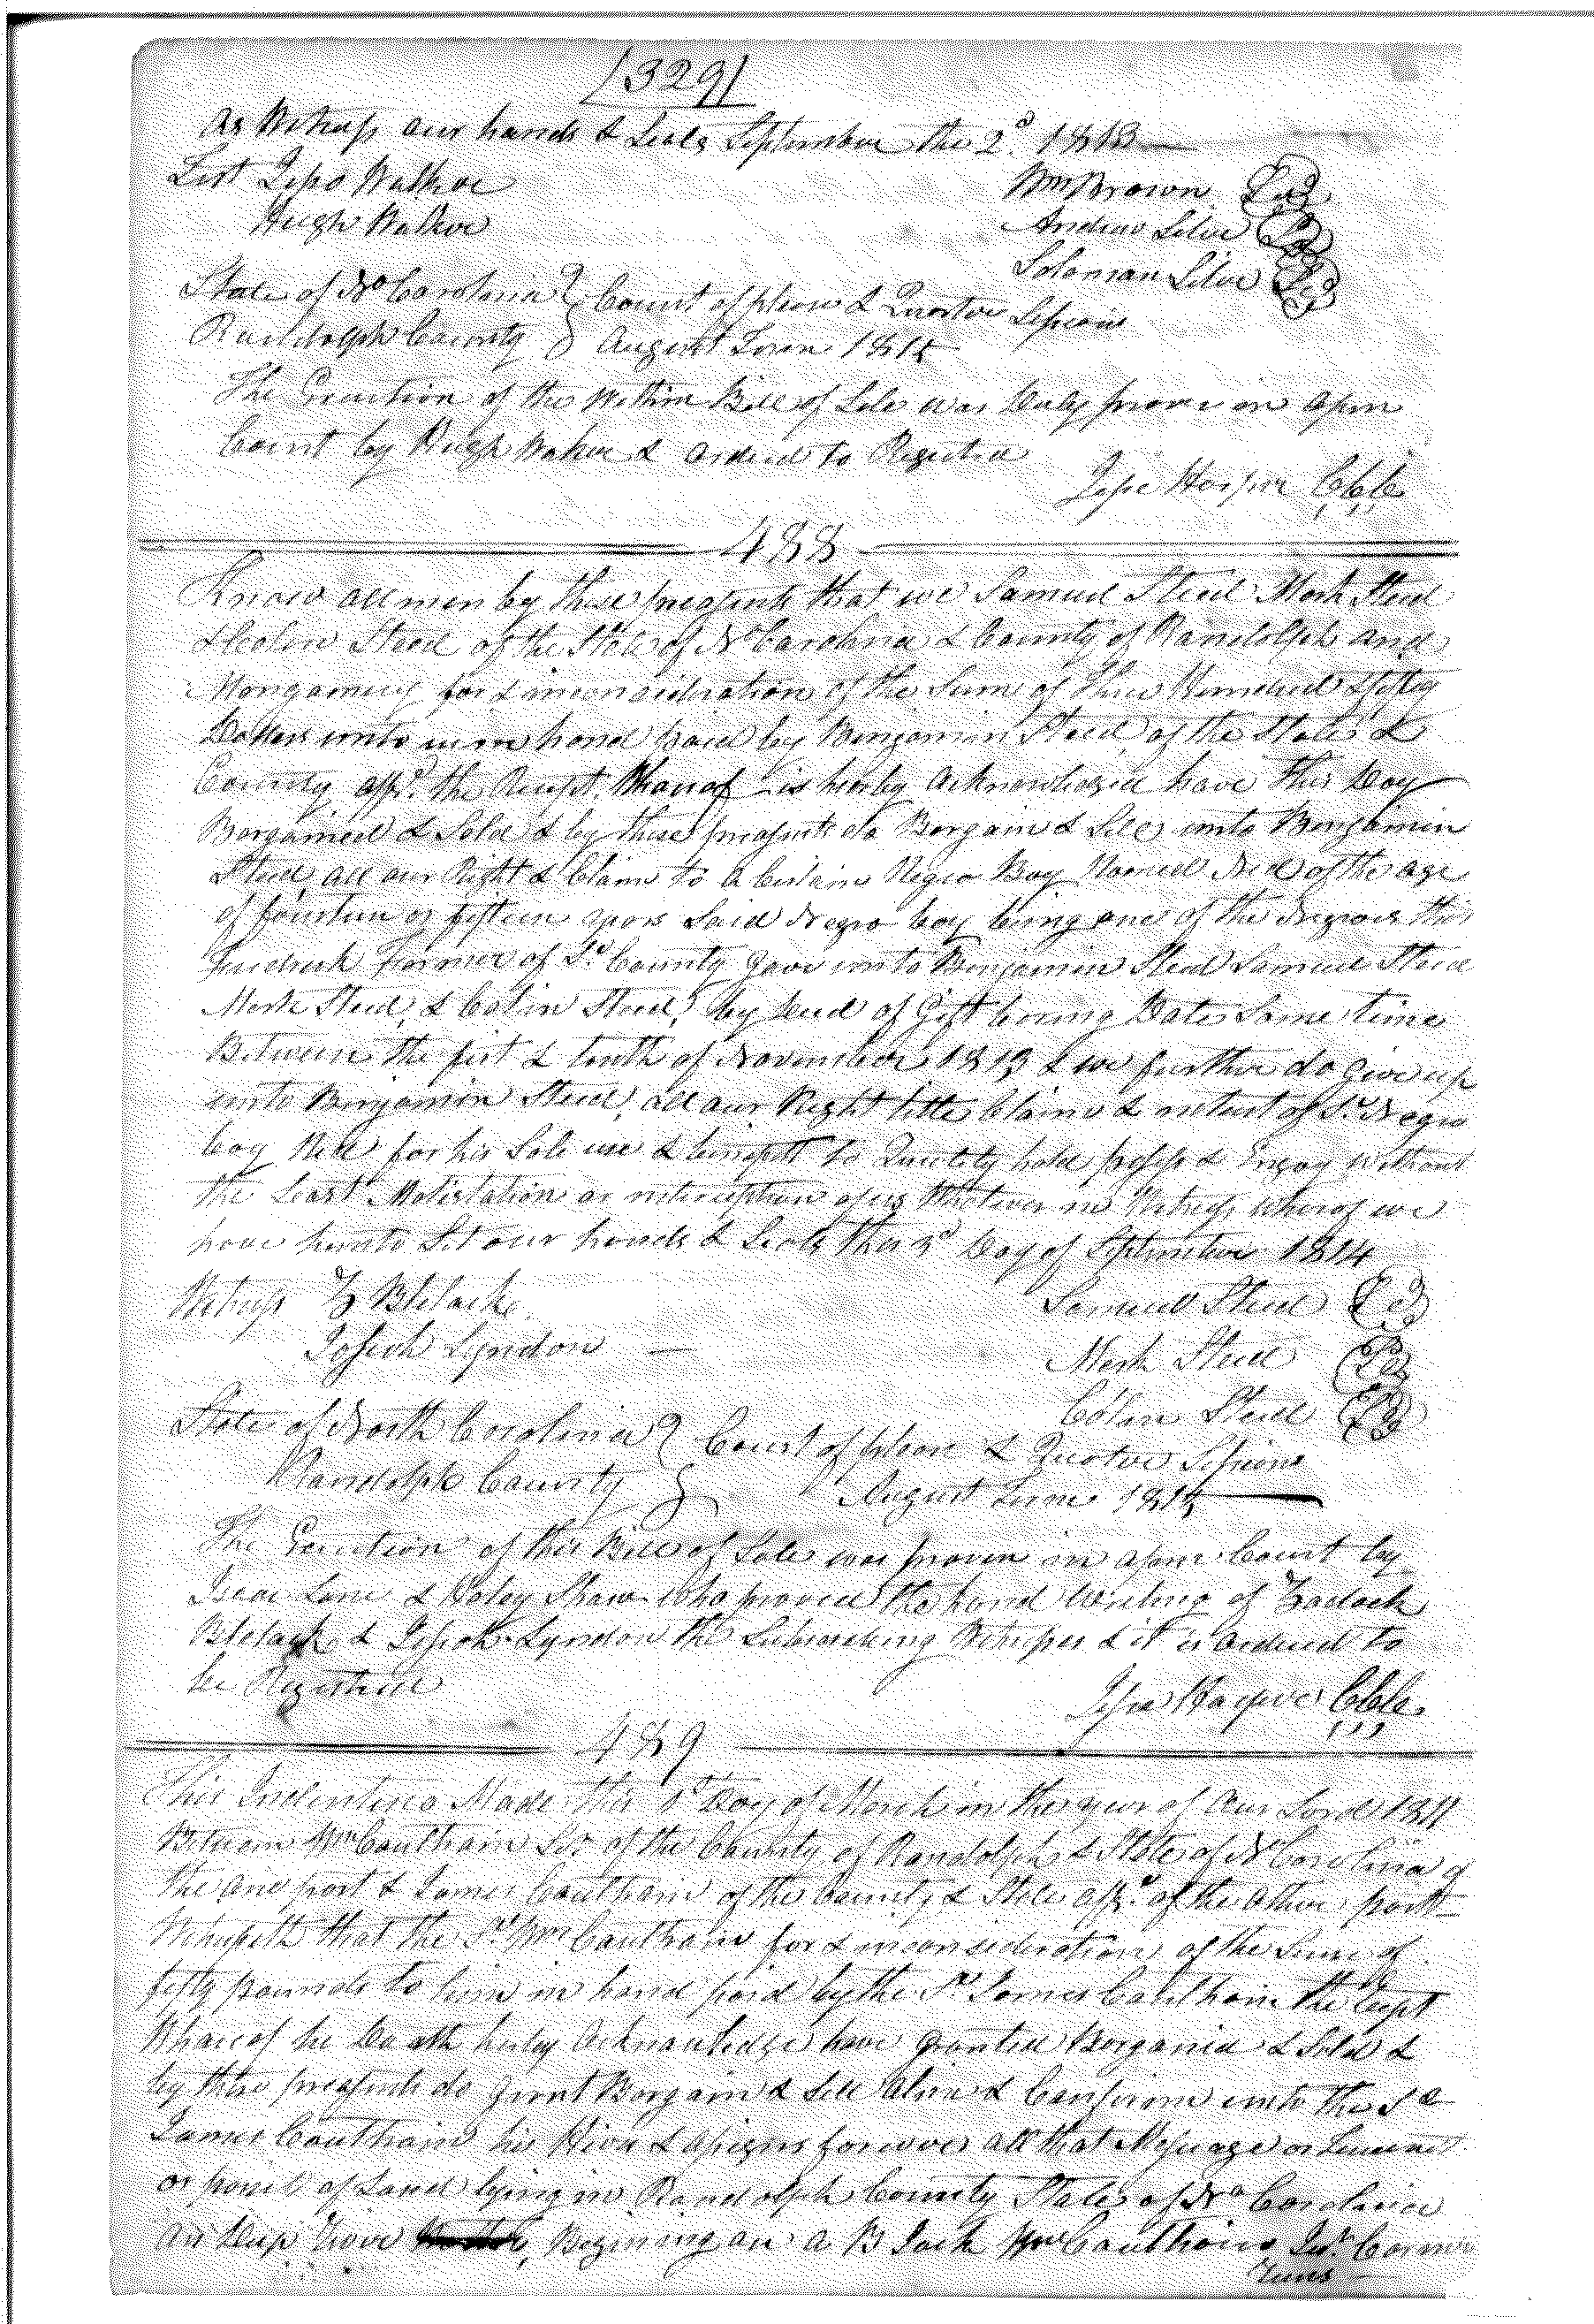 /329/
As Witness our hands & Seals September the 2d. 1813
Test Jesse Walker
Wm Brown Seal
Hugh Walker
Andrew Siler Seal
Solomon Siler Seal
State of No Carolina } Court of pleas & Quarter Sessions
Randolph County } August Term 1814
The Execution of the Within Bill of Sale was Duly prove in Open
Court by Hugh Walker & ordered to Registered
Jesse Harper CCC
488
Know all men by these presents that we Samuel Steed Mark Steed
& Colin Steed of the State of No Carolina & County of Randolph and
Mongomery for & inconsideration of the Sum of Three Hundred & fifty
Dollars unto us in hand paid by Benjamin Steed of the State &
County affd. the Receipt Whareof is hereby Acknowledged have this Day
Bargained & Sold & by these presents do Bargain & Sell unto Benjamin
Steed all our Right & Claim to a Certain Negro Boy Named Ned of the age
of fourteen or fifteen years Said Negro boy being one of the Negroes that
Fredrick of Sd. County Gave unto Benjamin Steed Samuel Steed
Mark Steed, & Colin Steed, by Deed of Gift bearing Date Some time
Between the first & tenth of November 1813 & we further do Give up
unto Benjamin Steed, all our Right title Claim & intrust of Sd. Negro
boy Ned for his Sole use & benefitt to Quietly hold possess & Enjoy Without
the Least Molistation or interruption of us Whatever in Witness Whereof we
have hereunto Set our hands & Seals this Day of September 1814
Witness Z Blelack
Samuel Steed Seal
Joseph Lyndon
Mark Steed Seal
Colin Steed Seal
State of North Carolina } Court of pleas & Quarter Sessions
Randolph County } August Term 1814
The Execution of this Bill of Sale was proven in open Court by
Isaac Lane & Shaw Who proved the hand Writing of Zadack
Blelack & Joseph Lyndon the Subscribing Witnesses & it is ordered to
be Registered
Jesse Harper CCC.
489
This Indenture Made this Day of March in the year of Our Lord 1811
Between Wm Caulthain Sr of the County of Randolph & State of No Carolina of
the one part & James Caulthain of the County & State affd. of the Other part
Witnesseth that the Sd. Wm Caulthain for & inconsideration of the Sum of
fifty pounds to him in hand paid by the Sd. James Caulthain the
Whareof he Doath hereby Acknowledge have Granted Bargained & Sold &
by these presents do Grant Bargain & Sell Alien & Confirm unto the Sd
James Caulthain his Heirs & Assigns forever all that Messuage or
or parcel of Land lying in Randolph County State of No Carolina
on Deep River Begining on a B Jack Wm Caulthains Jur. Corner